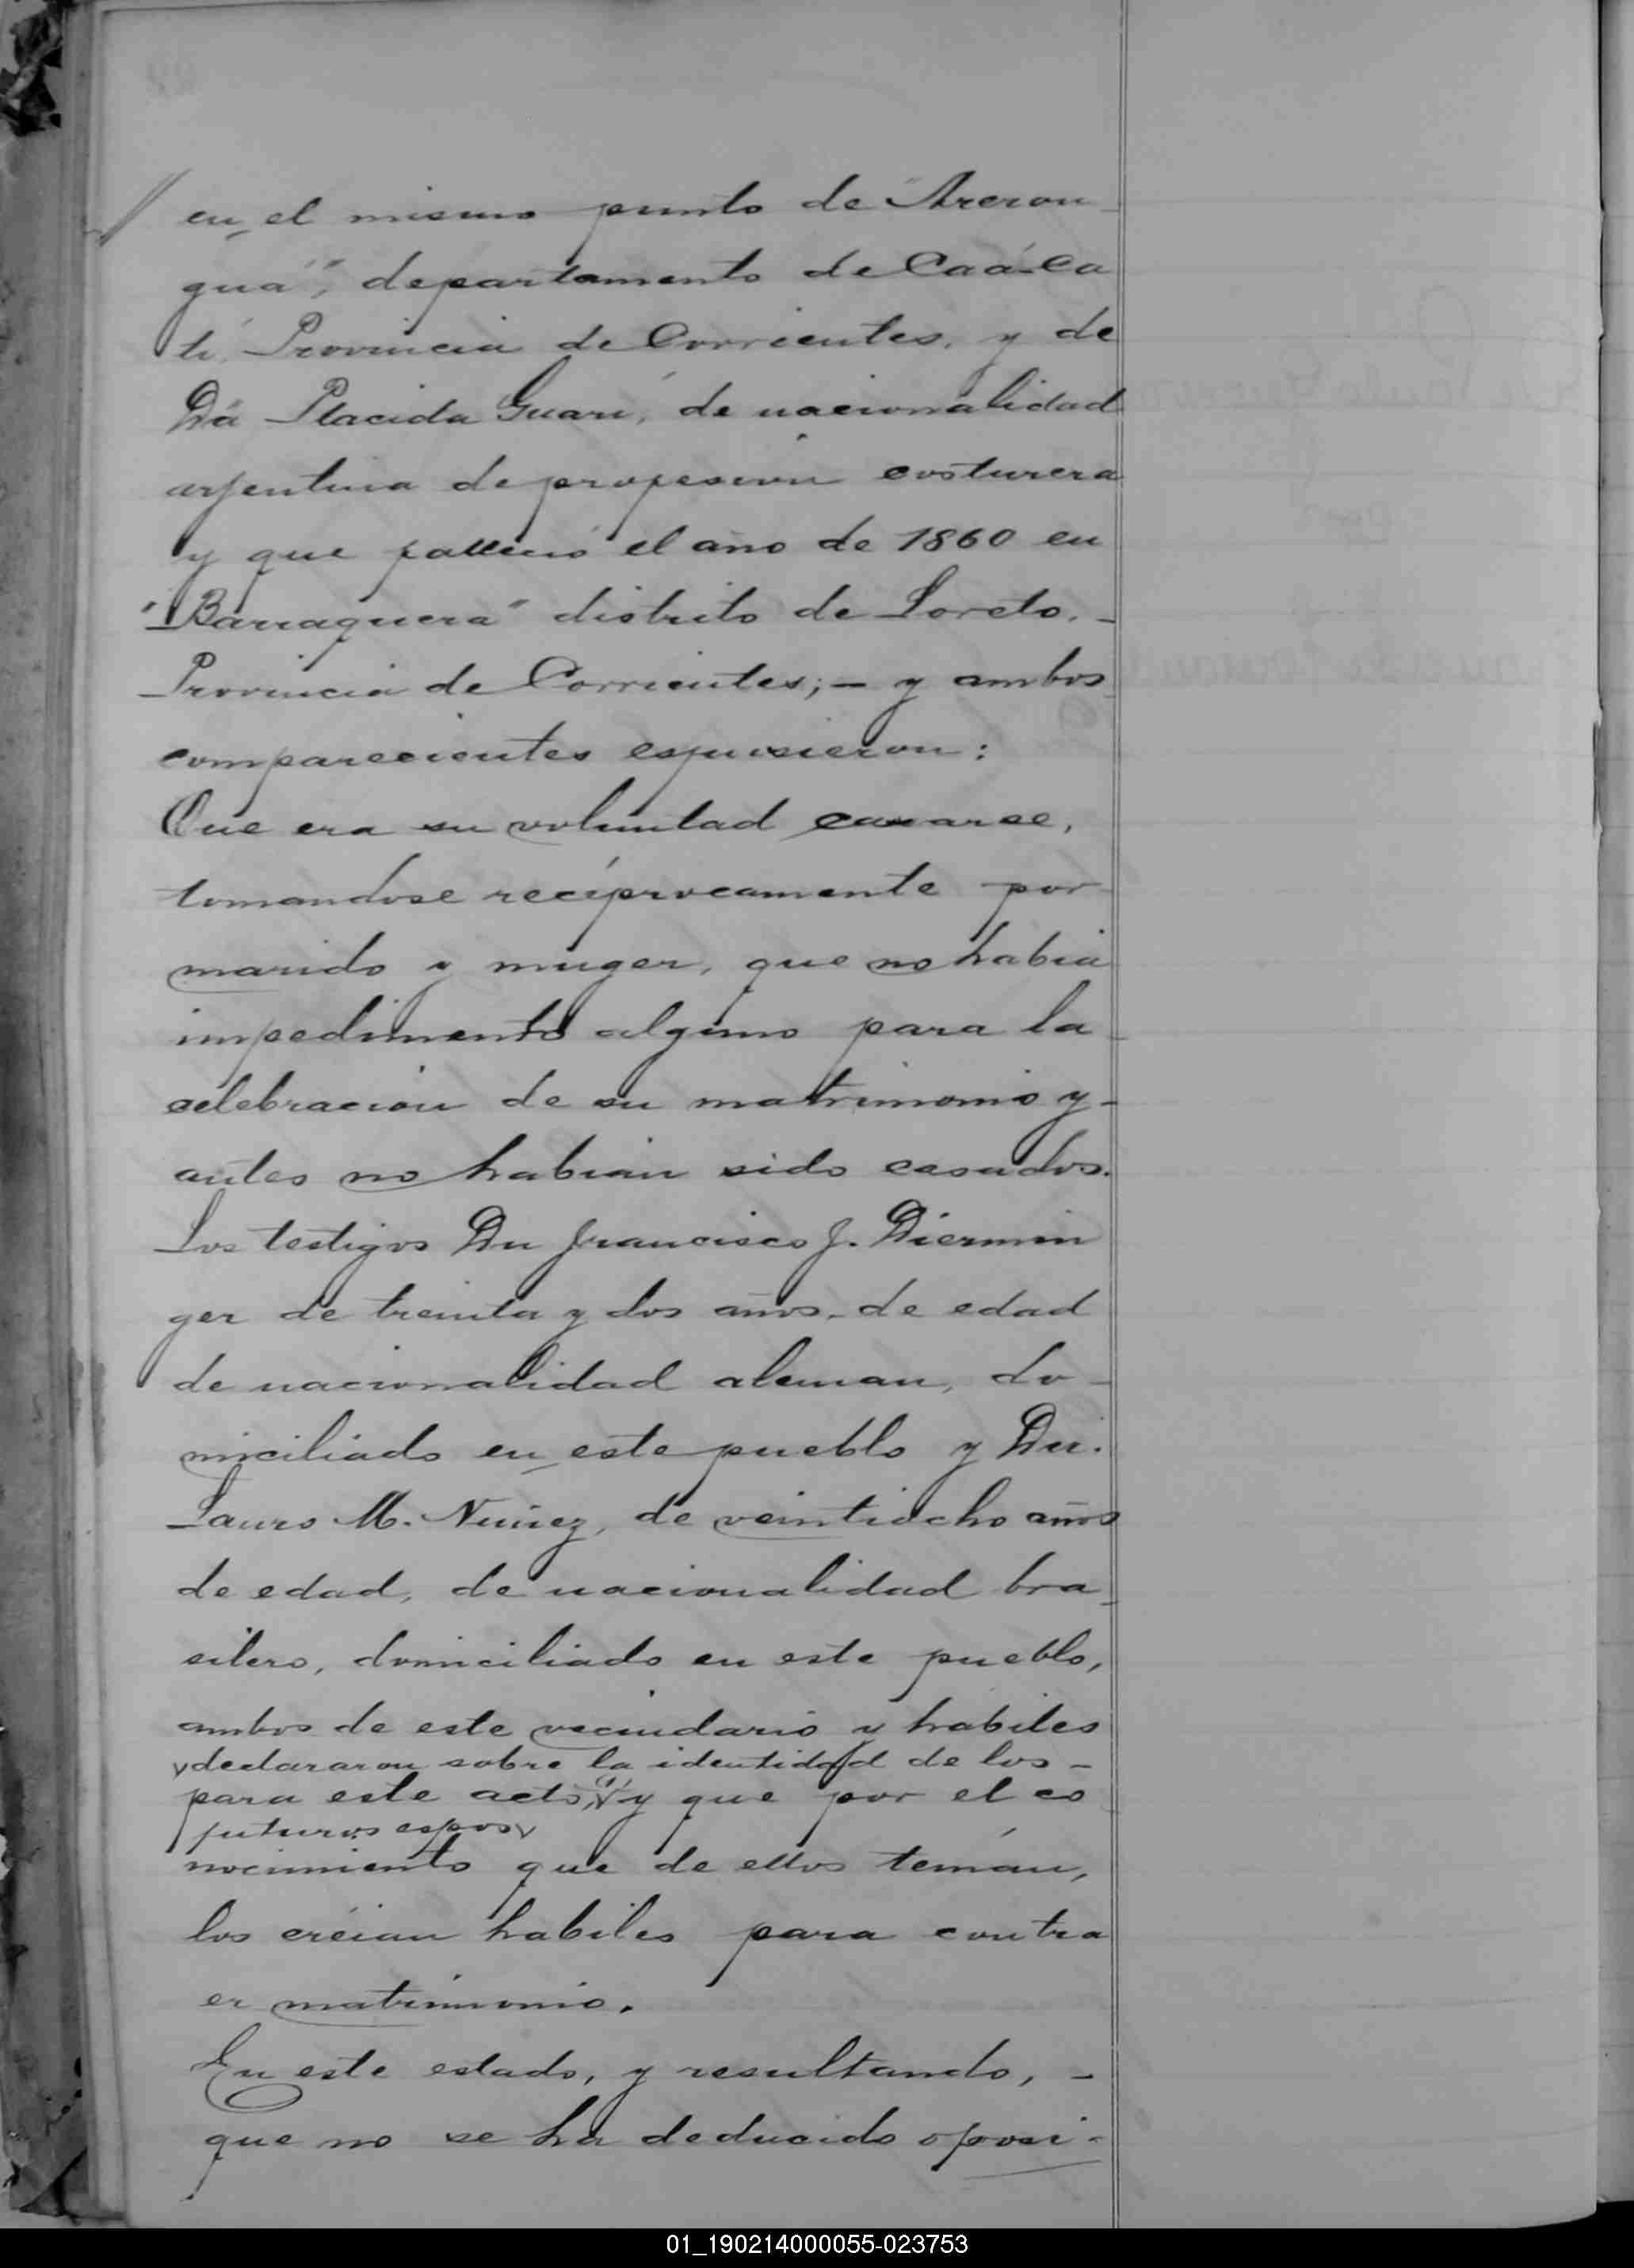 en el mismo punto de "Areron
guá", departamento de Caá-Ca
ti, Provincia de Corrientes, y de
Dª Placida Guari, de nacionalidad
arjentina de profesion costurera
y que falleció el año de 1860 en
"Barraquera" distrito de Loreto. -
Provincia de Corrientes; - y ambos
comparecientes espusieron:
Que era su voluntad casarse,
tomandose recíprocamente por
marido y muger, que no habia
impedimento alguno para la
celebracion de su matrimonio y -
antes no habian sido casados.
Los testigos Dn Francisco J. Diermin
ger de treinta y dos años de edad
de nacionalidad aleman, do-
miciliado en este pueblo y Dn.
Lauro M. Nuñez, de veintiocho años
de edad, de nacionalidad bra
silero, domiciliado en este pueblo,
ambos de este vecindario y habiles
declararon sobre la identidad de los -
para este acto, y que por el co
futuros esposos
nocimiento que de ellos tenian,
los creian habiles para contra
er matrimonio.
En este estado, y resultando, -
que no se ha deducido oposi-
01_190214000055-023753